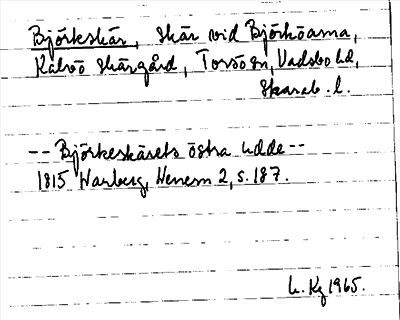 Björkeskär, skär vid Björköarna,
Kalvö skärgård, Torsö sn, Vadsbo hd,
Skarab. l.
-- Björkeskärets östra udde --
1815 Warberg, Wenern 2, s. 187.
L. Kg 1965.